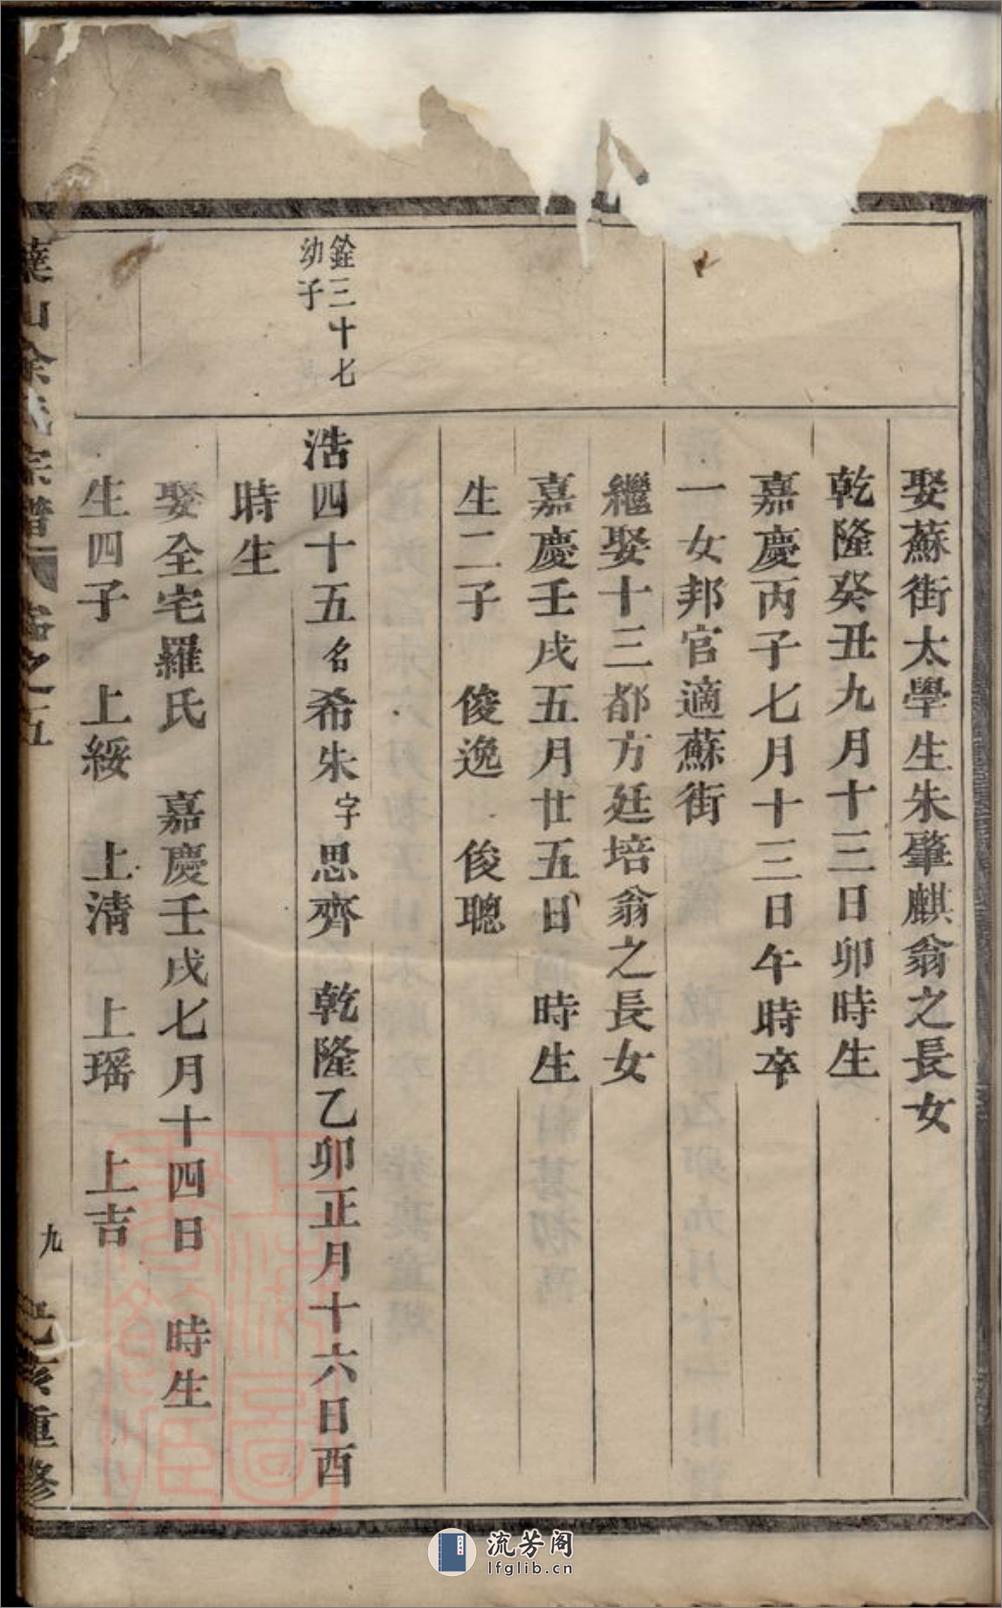 娶蘇街太學生朱肇麒翁之長女
乾隆癸丑九月十三日卯時生
嘉慶丙子七月十三日午時卒
一女邦官適蘇街
繼娶十三都方廷培翁之長女
嘉慶壬戌五月廿五日 時生
生二子 俊逸 俊聰
銓三十七
幼子
浩四十五名希朱字思齊 乾隆乙卯正月十六日酉
時生
娶全宅羅氏 嘉慶壬戌七月十四日 時生
生四子 上綏 上清 上瑶 上吉
山余氏宗譜 卷之五 九 亥重修
流芳阁
lfglib.cn